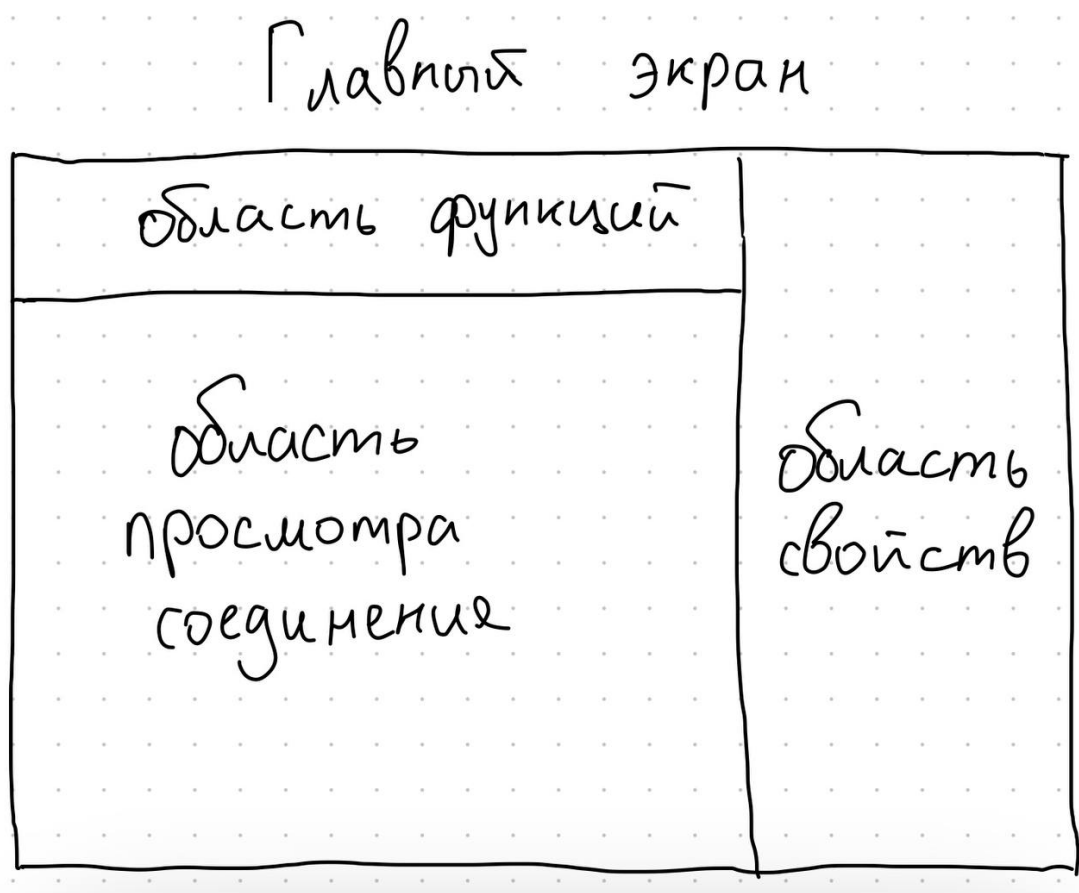 Главный экран
область функций
область
просмотра
соединения
область
свойств